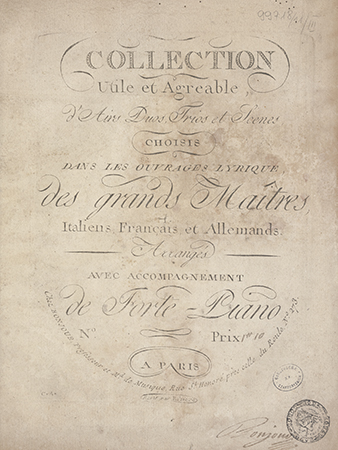 COLLECTION
Utile et Agréable
d'Airs Duos Trios et Scenes
CHOISIS
DANS LES OUVRAGES LYRIQUE
des grands Maîtres
Italiens, Français et Allemands.
Arrangés
AVEC ACCOMPAGNEMENT
de Forte-Piano
N° Prix
A PARIS
Chez BONJOUR, Professeur et de Musique, R. de St. Honoré, près celle du Roule, N° 273.
Bonjour